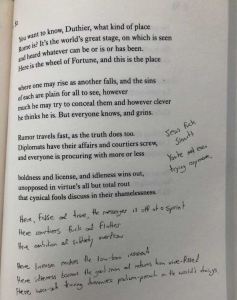 You want to know, Duthier, what kind of place
Rome is? It's the world's great stage, on which is seen
and heard whatever can be or is or has been.
Here is the wheel of Fortune, and this is the place
where one may rise as another falls, and the sins
of each are plain for all to see, however
much he may try to conceal them and however clever
he thinks he is. But everyone knows, and grins.
Rumor travels fast, as the truth does too.
Diplomats have their affairs and courtiers screw,
and everyone is procuring with more or less
boldness and license, and idleness wins out,
unopposed in virtue's all but total rout
that cynical fools discuss in their shamelessness.
Here, False and true, the messenger is off at a sprint
Here courtiers fuck and flutter
Here ambition and subtlety overflow
Here license makes the low-born
Here idleness become the
Here